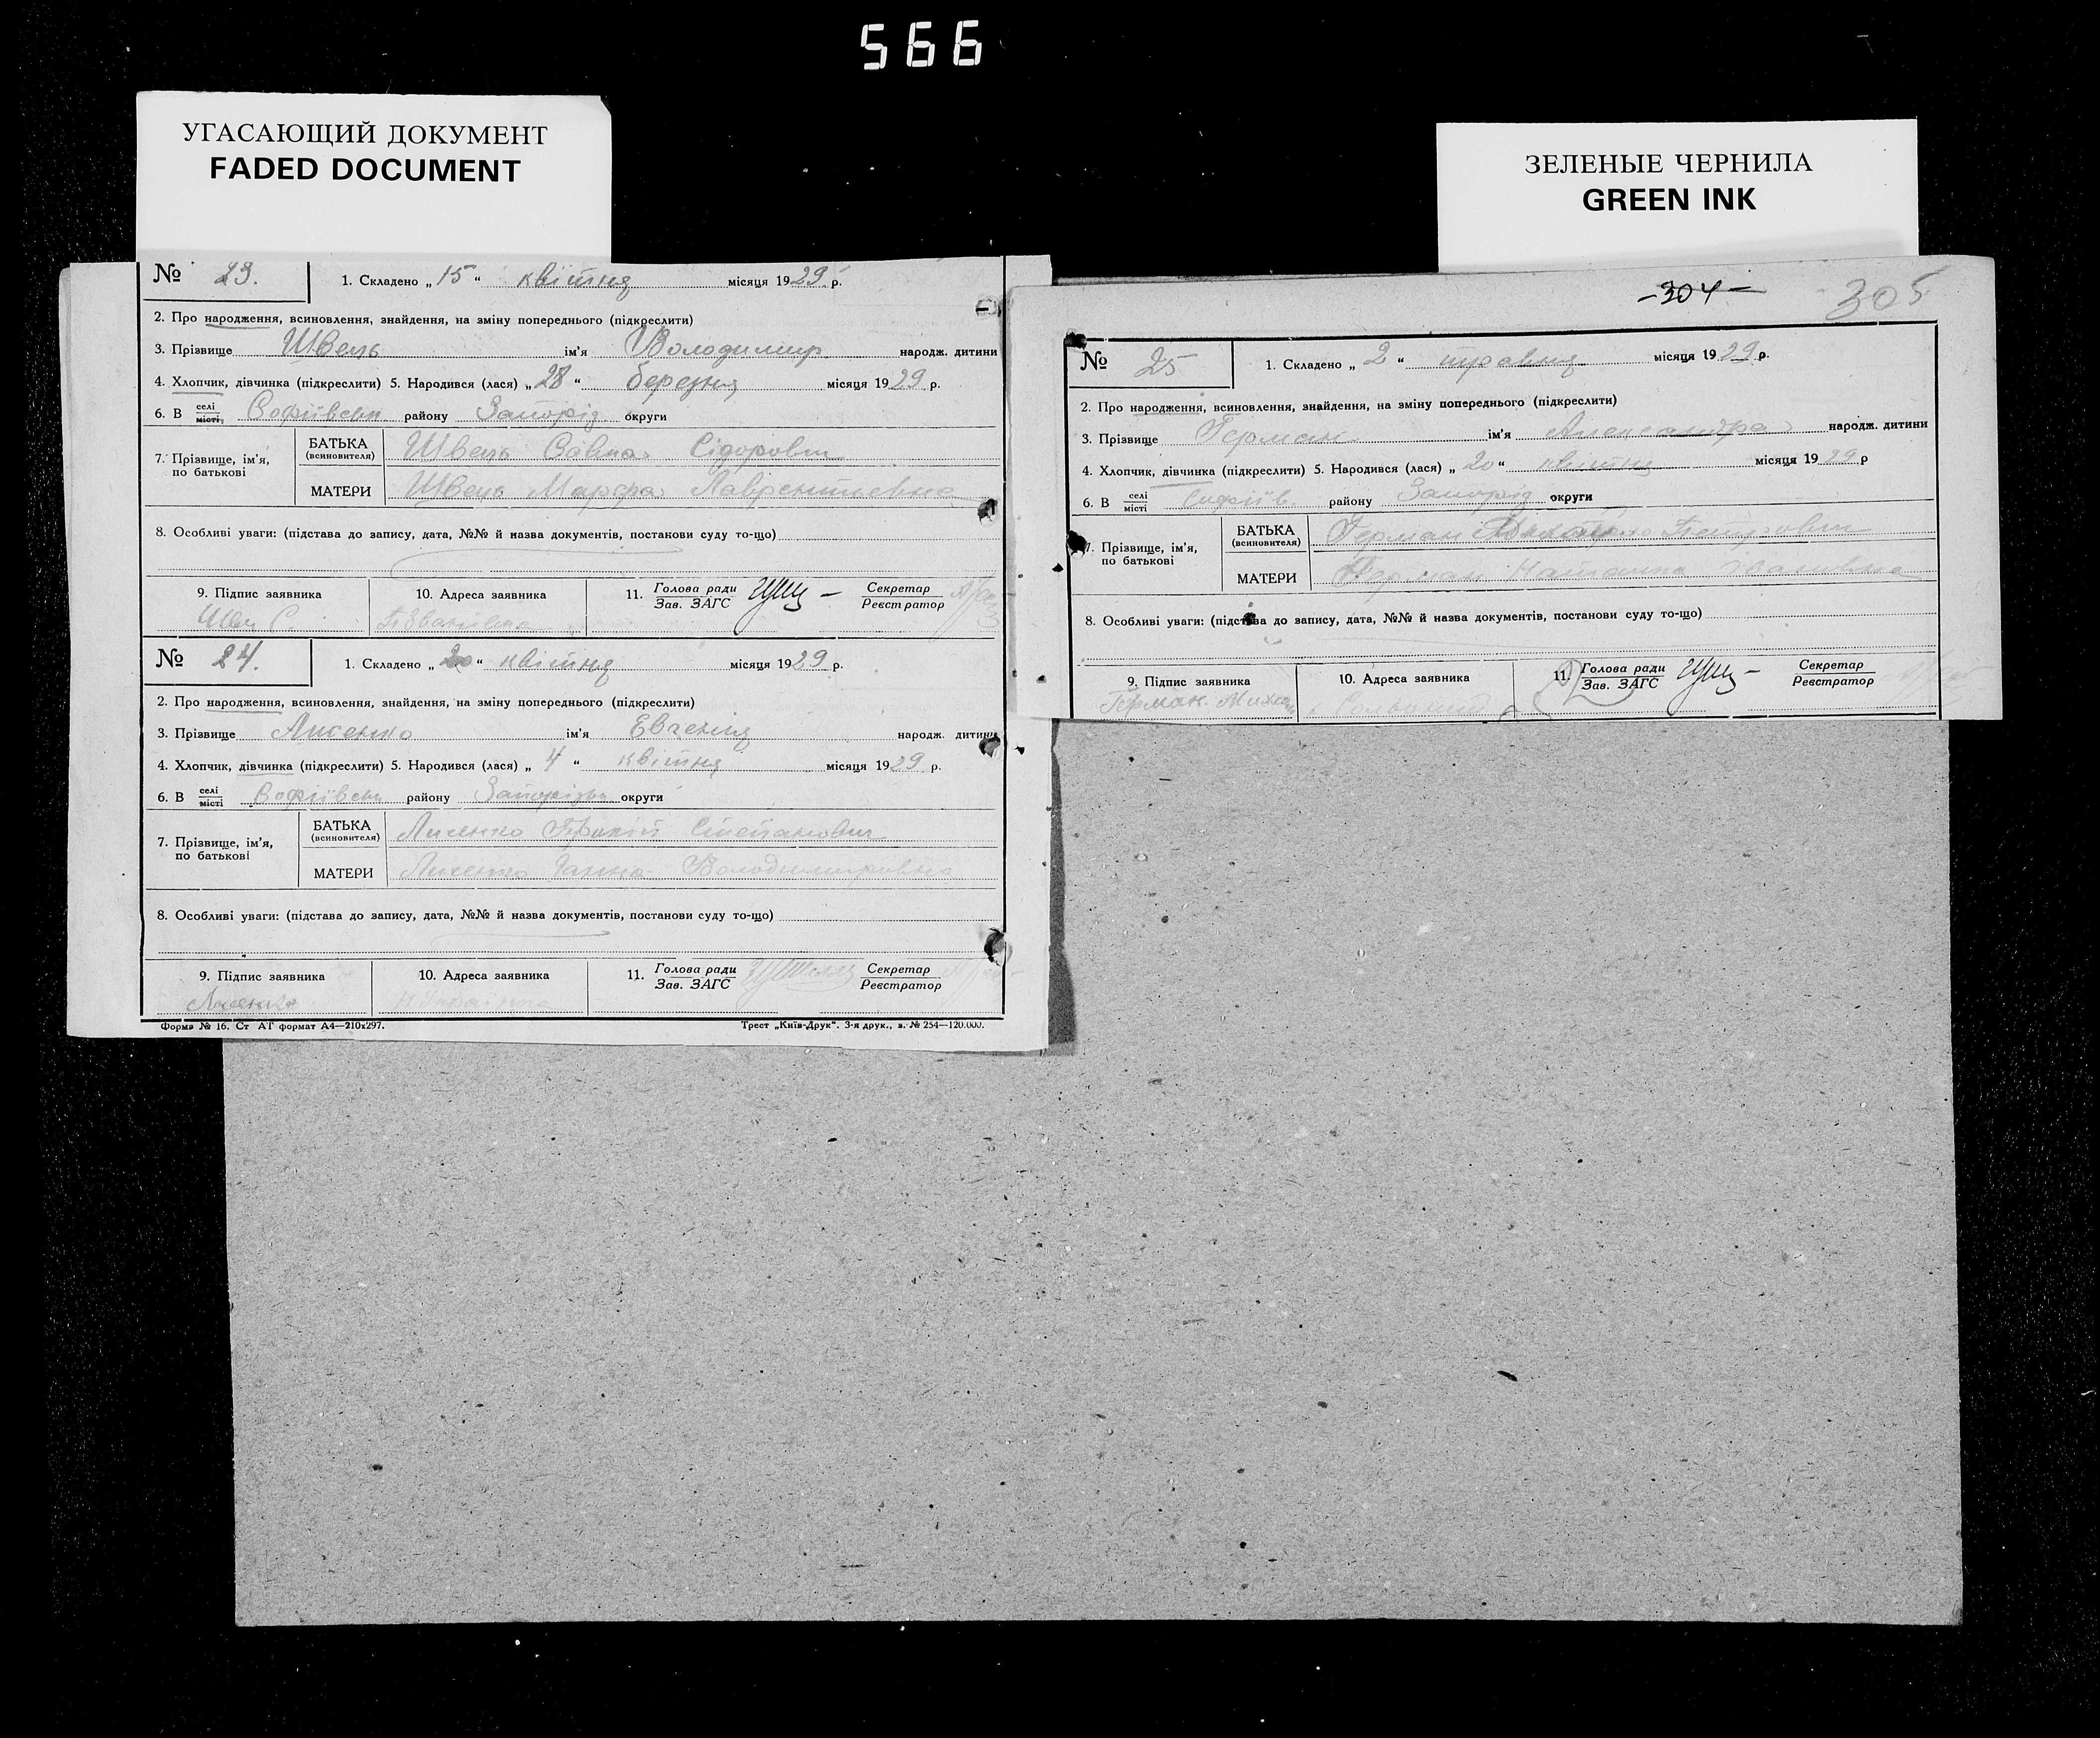 566
УГАСАЮЩИЙ ДОКУМЕНТ
FADED DOCUMENT
ЗЕЛЕНЫЕ ЧЕРНИЛА
GREEN INK
№ 23. 1. Складено „ 15 “ квітня місяця 1929 р.
2. Про народження, всиновлення, знайдення, на зміну попереднього (підкреслити)
3. Прізвище Швець ім'я Володимир народж. дитини
4. Хлопчик, дівчинка (підкреслити) 5. Народився (лася) „ 28 “ березня місяця 1929 р.
6. В селі місті, Софіївськ району Запоріз округи
7. Прізвище, ім'я, по батькові
БАТЬКА (всиновителя) Швець Савка Сідорович
МАТЕРИ Швець Марфа Лаврентиевна
8. Особливі уваги: (підстава до запису, дата, №№ й назва документів, постанови суду то-що)
9. Підпис заявника 10. Адреса заявника 11. Голова ради Зав. ЗАГС Секретар Реєстратор
№ 24. 1. Складено „ 20 “ квітня місяця 1929 р.
2. Про народження, всиновлення, знайдення, на зміну попереднього (підкреслити)
3. Прізвище Лисенко ім'я Евгенія народж. дитини
4. Хлопчик, дівчинка (підкреслити) 5. Народився (лася) „ 4 “ квітня місяця 1929 р.
6. В селі місті Софіївськ району Запорізьк округи
7. Прізвище, ім'я, по батькові
БАТЬКА (всиновителя) Лисенко Степанович
МАТЕРИ Лисенко Ганна Володимировна
8. Особливі уваги: (підстава до запису, дата, №№ й назва документів, постанови суду то-що)
9. Підпис заявника 10. Адреса заявника 11. Голова ради Зав. ЗАГС Секретар Реєстратор
Лисенко
Форма № 16. Ст АТ формат А4—210х297. Трест „Київ-Друк“. 3-я друк., з. № 254—120.000.
–304– 305
№ 25 1. Складено „ 2 “ травня місяця 1929 р.
2. Про народження, всиновлення, знайдення, на зміну попереднього (підкреслити)
3. Прізвище Герман ім'я Александра народж. дитини
4. Хлопчик, дівчинка (підкреслити) 5. Народився (лася) „ 20 “ квітня місяця 1929 р
6. В селі місті Софіїв району Запоріз округи
7. Прізвище, ім'я, по батькові
БАТЬКА (всиновителя) Герман Петрович
МАТЕРИ Герман Наталка Іванивна
8. Особливі уваги: (підстава до запису, дата, №№ й назва документів, постанови суду то-що)
9. Підпис заявника 10. Адреса заявника 11. Голова ради Зав. ЗАГС Секретар Реєстратор
Герман